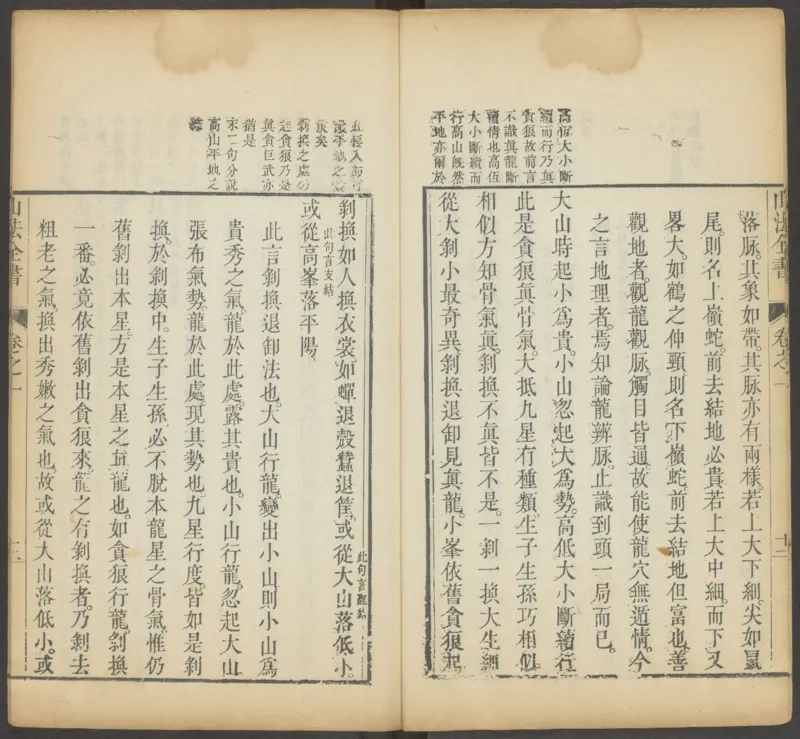 高低大小斷
續而行乃眞
貪狼故前言
不識眞龍斷
續情也高低
大小斷續而
行高山旣然
平地亦爾於
山法全書
卷之一
十二
落脉。其象如帶。其脉亦有兩樣。若上大下細。尖如鼠
尾。則名上嶺蛇。前去結地必貴。若上大中細。而下又
畧大。如鶴之伸頸。則名下嶺蛇。前去結地但富也。善
觀地者。觀龍觀脉。觸目皆通。故能使龍穴無遁情。今
之言地理者。焉知論龍辨脉。止識到頭一局而已。
大山時起小爲貴。小山忽起大爲勢。高低大小斷續行
此是貪狼眞骨氣。大抵九星有種類。生子生孫巧相似
相似方知骨氣眞。剝換不眞皆不是。一剝一換大生細
從大剝小最奇異。剝換退卸見眞龍。小峯依舊貪狼起
剝換之處
是貪狼乃是
眞貪巨武亦
猶是
末二句分說
高山平地之
結
剝換如人換衣裳。如蟬退殼蠶退筐。或從大山落低小。
此句言龍結
或從高峯落平陽。
此句言支結
此言剝換退卸法也。大山行龍。變出小山。則小山爲
貴秀之氣。龍於此處。露其貴也。小山行龍。忽起大山
張布氣勢。龍於此處。現其勢也。九星行度。皆如是剝
換。於剝換中。生子生孫必不脫本龍星之骨氣。惟仍
舊剝出本星。方是本星之眞龍也。如貪狼行龍。剝換
一番。必竟依舊剝出貪狼來。龍之有剝換者。乃剝去
粗老之氣。換出秀嫩之氣也。故或從大山落低小。或
山法全書
卷之一